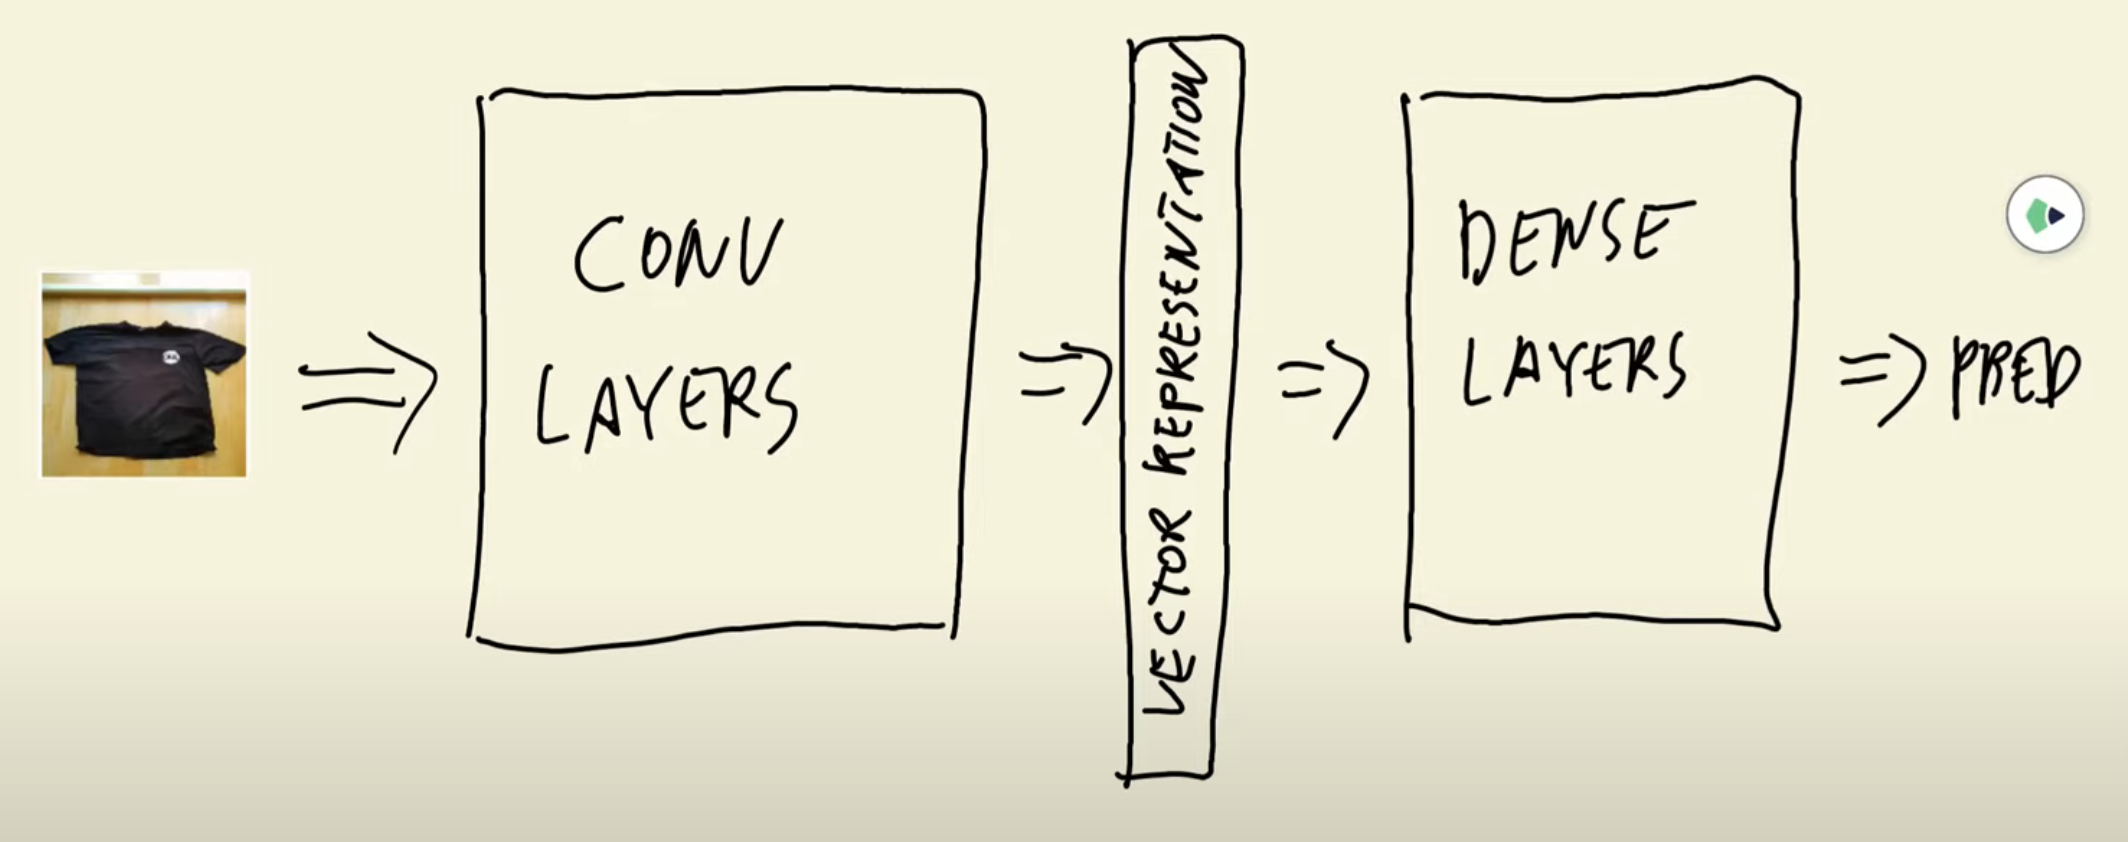 CONV
LAYERS
VECTOR REPRESENTATION
DENSE
LAYERS
=> PRED